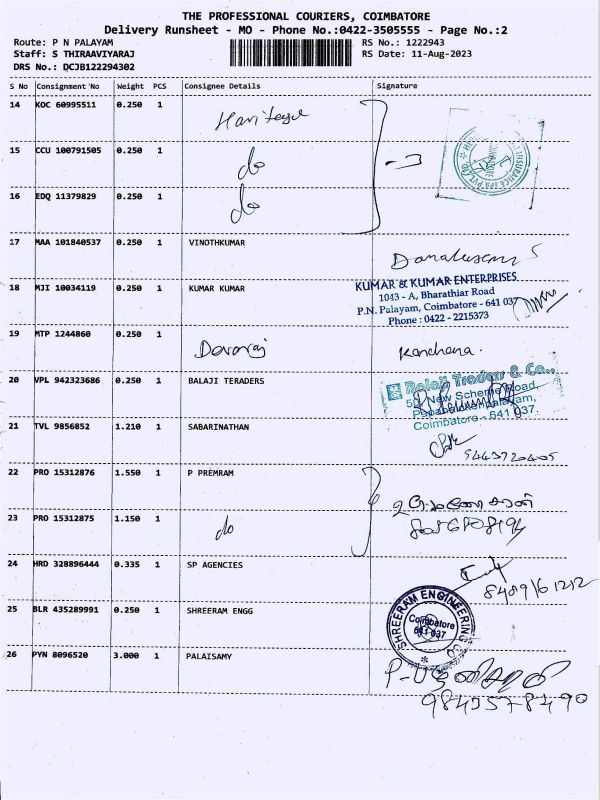 THE PROFESSIONAL COURIERS, COIMBATORE
Delivery Runsheet - MO - Phone No.:0422-3505555 - Page No.:2
Route: P N PALAYAM RS No.: 1222943
Staff: S THIRAAVIYARAJ RS Date: 11-Aug-2023
DRS No.: DCJB122294302
S No Consignment No Weight PCS Consignee Details Signature
14 KOC 60995511 0.250 1
15 CCU 100791505 0.250 1 do
16 EDQ 11379829 0.250 1 do
17 MAA 101840537 0.250 1 VINOTHKUMAR
18 MJI 10034119 0.250 1 KUMAR KUMAR
KUMAR & KUMAR ENTERPRISES
1043 - A, Bharathiar Road
P.N. Palayam, Coimbatore - 641 037
Phone : 0422 - 2215373
19 MTP 1244860 0.250 1 Devaraj Kanchana.
20 VPL 942323686 0.250 1 BALAJI TERADERS
Balaji Traders & Co.,
50, New Scheme Road,
Pappanaickenpalayam,
Coimbatore - 641 037.
21 TVL 9856852 1.210 1 SABARINATHAN
9443720405
22 PRO 15312876 1.550 1 P PREMRAM
23 PRO 15312875 1.150 1 do
24 HRD 328896444 0.335 1 SP AGENCIES
8489161212
25 BLR 435289991 0.250 1 SHREERAM ENGG
SHREERAM ENGINEERING CO
Coimbatore
641 037
26 PYN 8096520 3.000 1 PALAISAMY
9843578490